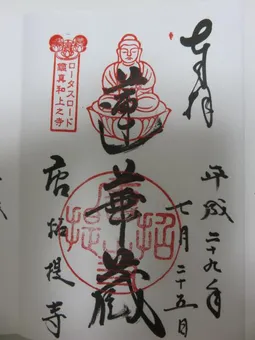 奉拝
平成二十九年
七月二十五日
蓮華蔵
ロータスロード
鑑真和上之寺
唐招提寺